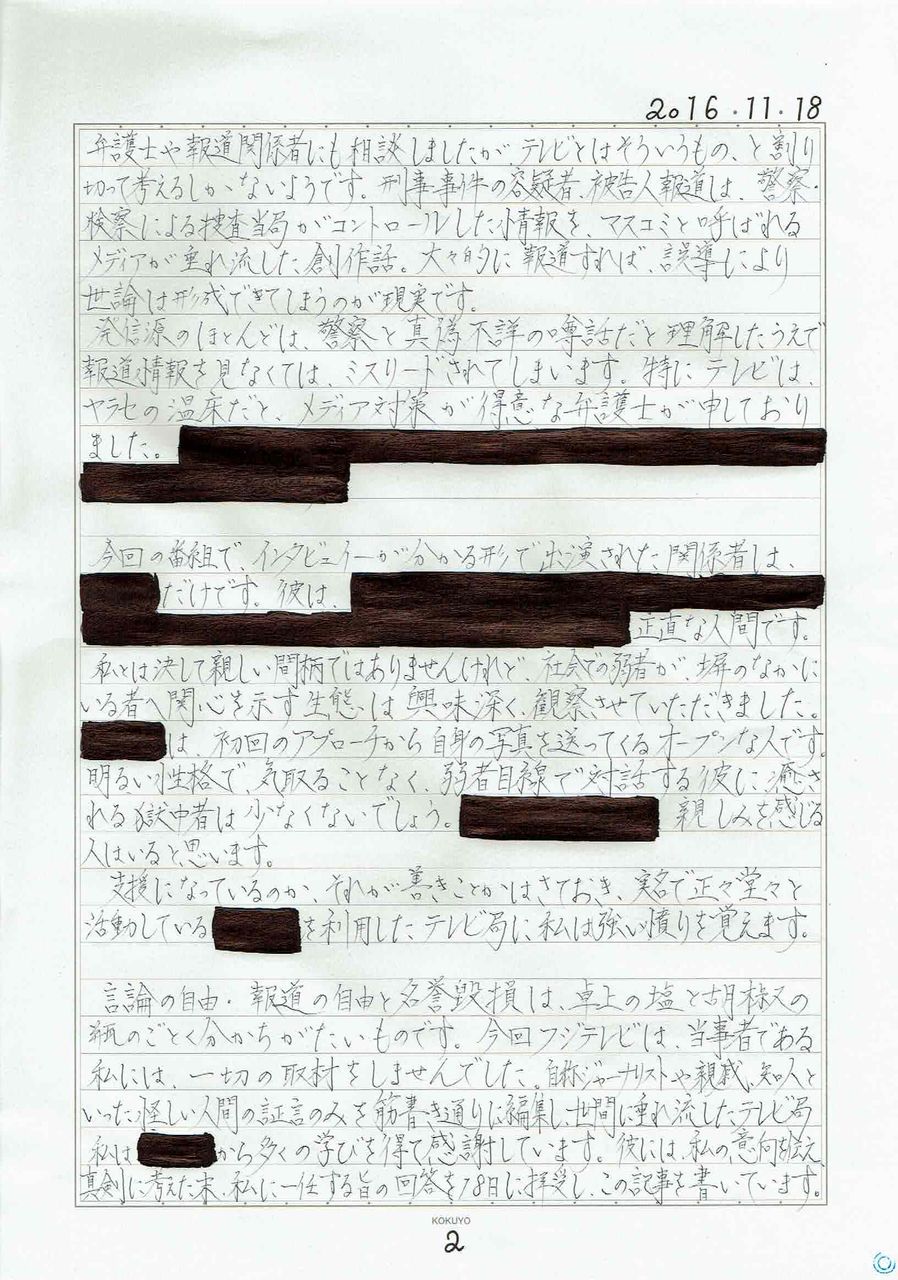 2016.11.18
弁護士や報道関係者にも相談しましたが、テレビとはそういうもの、と割り
切って考えるしかないようです。刑事事件の容疑者、被告人報道は、警察・
検察による捜査当局がコントロールした情報を、マスコミと呼ばれる
メディアが垂れ流した創作話。大々的に報道すれば、誤導により
世論は形成できてしまうのが現実です。
発信源のほとんどは、警察と真偽不詳の噂話だと理解したうえで
報道情報を見なくては、ミスリードされてしまいます。特にテレビは、
ヤラセの温床だと、メディア対策が得意な弁護士が申しており
ました。
今回の番組で、インタビュイーが分かる形で出演された関係者は、
だけです。彼は、
正直な人間です。
私とは決して親しい間柄ではありませんけれど、社会での弱者が、塀のなかに
いる者へ関心を示す生態は興味深く、観察させていただきました。
は、初回のアプローチから自身の写真を送ってくるオープンな人です。
明るい性格で、気取ることなく、弱者目線で対話する彼に癒さ
れる獄中者は少なくないでしょう。 親しみを感じる
人はいると思います。
支援になっているのか、それが善きことかはさておき、実名で正々堂々と
活動している を利用したテレビ局に私は強い憤りを覚えます。
言論の自由・報道の自由と名誉毀損は、卓上の塩と胡椒の
瓶のごとく分かちがたいものです。今回フジテレビは、当事者である
私には、一切の取材をしませんでした。自称ジャーナリストや親戚、知人と
いった怪しい人間の証言のみを筋書き通りに編集し世間に垂れ流したテレビ局
私は から多くの学びを得て感謝しています。彼には、私の意向を伝え、
真剣に考えた末、私に一任する旨の回答を18日に拝受し、この記事を書いています。
KOKUYO
2